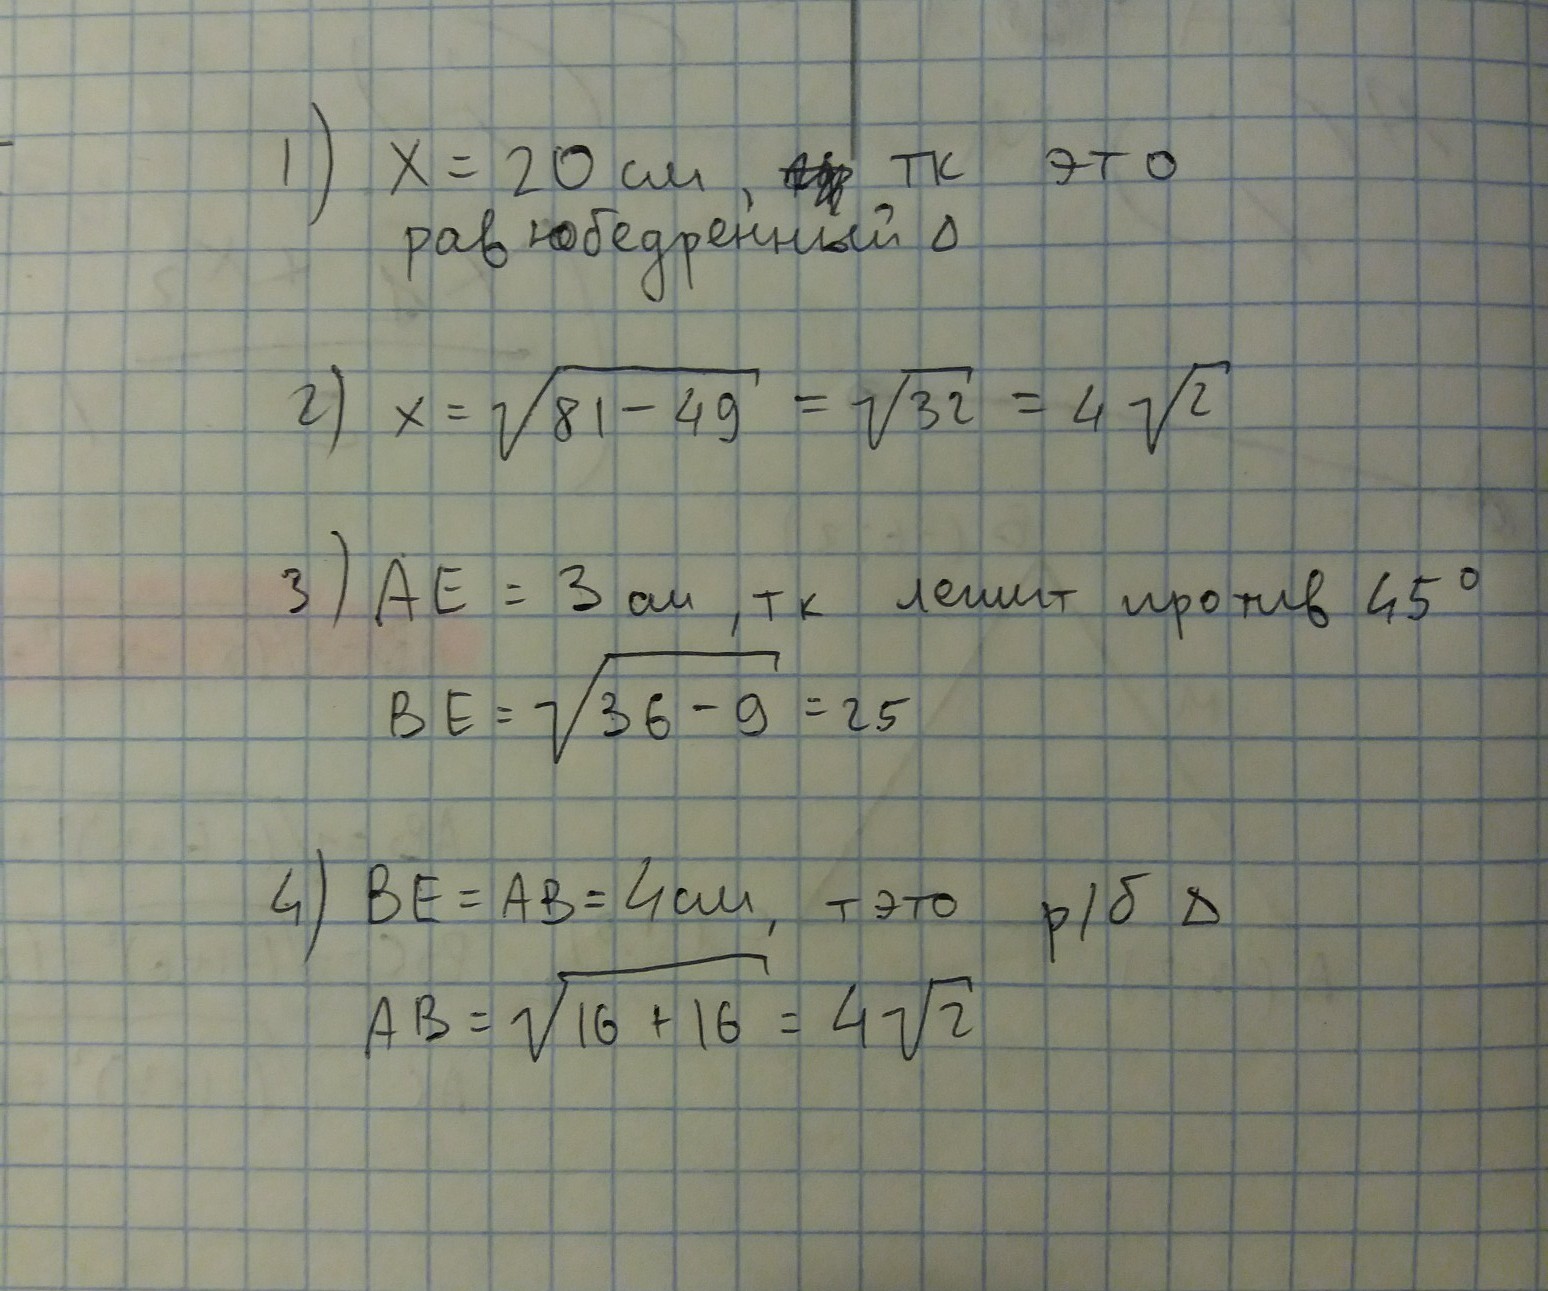 1) x = 20 см, тк это
равнобедренный Δ
2) x = √81 - 49 = √32 = 4√2
3) AE = 3 см, тк лежит против 45°
BE = √36 - 9 = 25
4) BE = AB = 4 см, т это р/б Δ
AB = √16 + 16 = 4√2